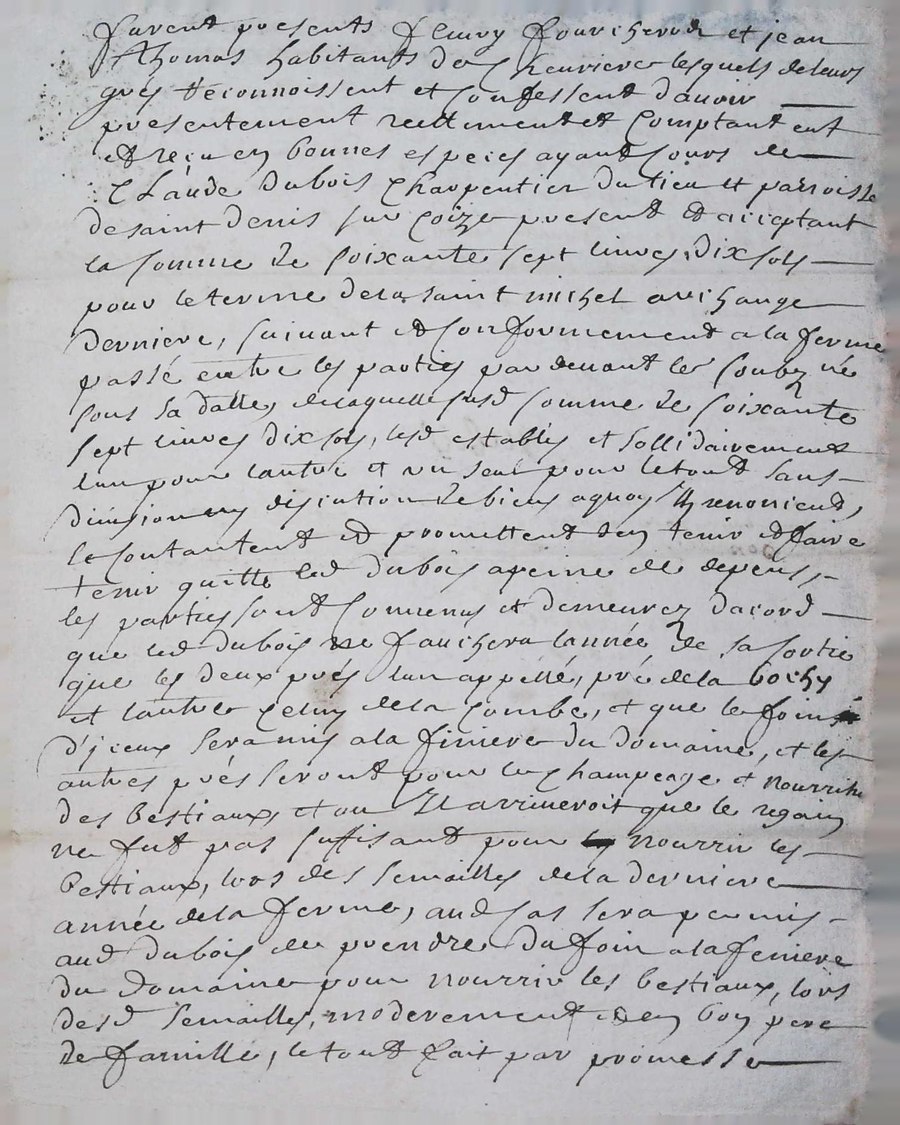 furent presents fleury fourcheron et jean
Thomas habitants de Cheuriere lesquels de leurs
gres reconnoissent et Confessent d'auoir
presentement reellement et Comptant eut
et reçu en bonnes especes ayand Cours de
Claude dubois Charpentier du lieu et parroisse
de saint denis sur Coize present et acceptant
la somme de soixante sept liures dix sols
pour le terme de la saint michel archange
derniere, suiuant et Conformement a la ferme
passé entre les parties par deuant le soubz né
sous sa datte, de laquelle susd somme de soixante
sept liures dix sols, lesd establis et sollidairement
lun pour lautre et un seul pour le tout sans
diuision ny discution de biens a quoy Ils renoncient,
le Contantent et promettent den tenir et faire
tenir quitte led dubois a peine de depens,
les parties sont Conuenus et demeurez dacord
que led dubois ne fauchera lannée de sa sortie
que les deux prés lun appellé, pré de la bochy
et lautre celuy de la Combe, et que le foin
d'jceux sera mis a la finiere du domaine, et les
autres prés seront pour le Champeage et nourritu
des bestiaux, et ou Il arriueroit que le regain
ne fut pas suffisant pour nourrir les
bestiaux, lors des semailles de la derniere
année de la ferme, aud cas sera permis
aud dubois de prendre du foin a la feniere
du domaine pour nourrir les bestiaux, lors
desd semailles, moderement et en bon pere
de famille, le tout fait par promesse